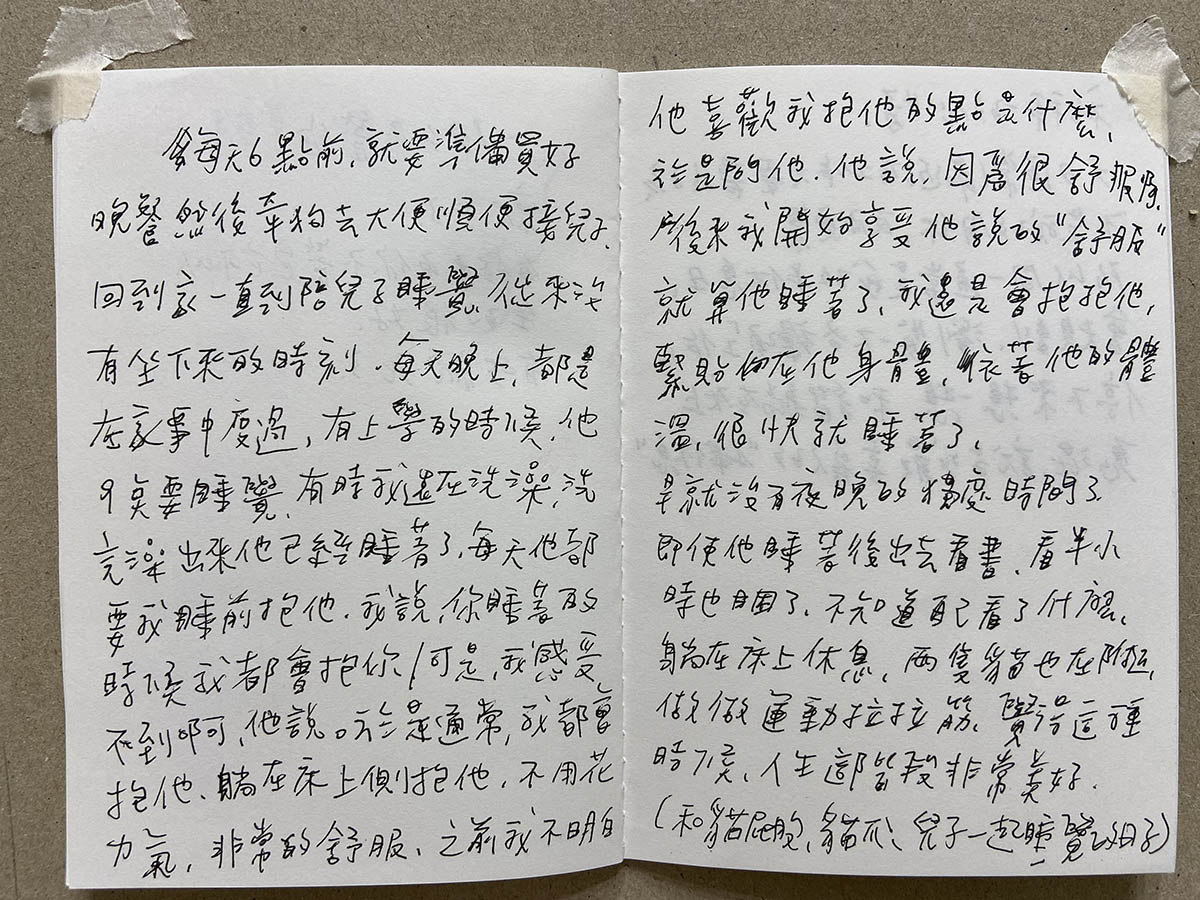 每天6點前,就要準備買好
晚餐然後牽狗去大便順便接兒子
回到家一直到陪兒子睡覺,從來沒
有坐下來的時刻.每天晚上,都是
在家事中度過,有上學的時候,他
9點要睡覺,有時我還在洗澡,洗
完澡出來他已經睡著了,每天他都
要我睡前抱他.我說,你睡著的
時候我都會抱你/可是,我感受
不到啊,他說。於是通常,我都會
抱他、躺在床上側抱他,不用花
力氣,非常的舒服、之前我不明白
他喜歡我抱他的點是什麼,
於是問他.他說,因為很舒服呀.
後來我開始享受他說的"舒服"
就算他睡著了,我還是會抱抱他,
緊貼在他身體,依著他的體
溫,很快就睡著了、
早就沒有夜晚的獨處時間了
即使他睡著後出去看書、看半小
時也睏了、不知道自己看了什麼、
躺在床上休息,兩隻貓也在附近,
做做運動拉拉筋、覺得這種
時候,人生這部分非常美好.
(和貓屁股,貓爪、兒子一起睡覺的日子)